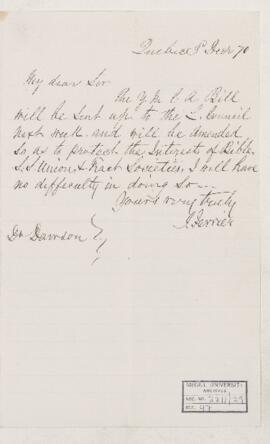 Quebec 9 Decr 70
My dear Sir
The Y M C A Bill
will be sent up to the L. Council
next week and will be amended
so as to protect the Interests of Bible
S.S Union & Tract Societies, I will have
no difficulty in doing so—
Yours very truly
J Ferrier
Dr Dawson
MCGILL UNIVERSITY
ARCHIVES
ACC. NO. 2211/29
REF. 47